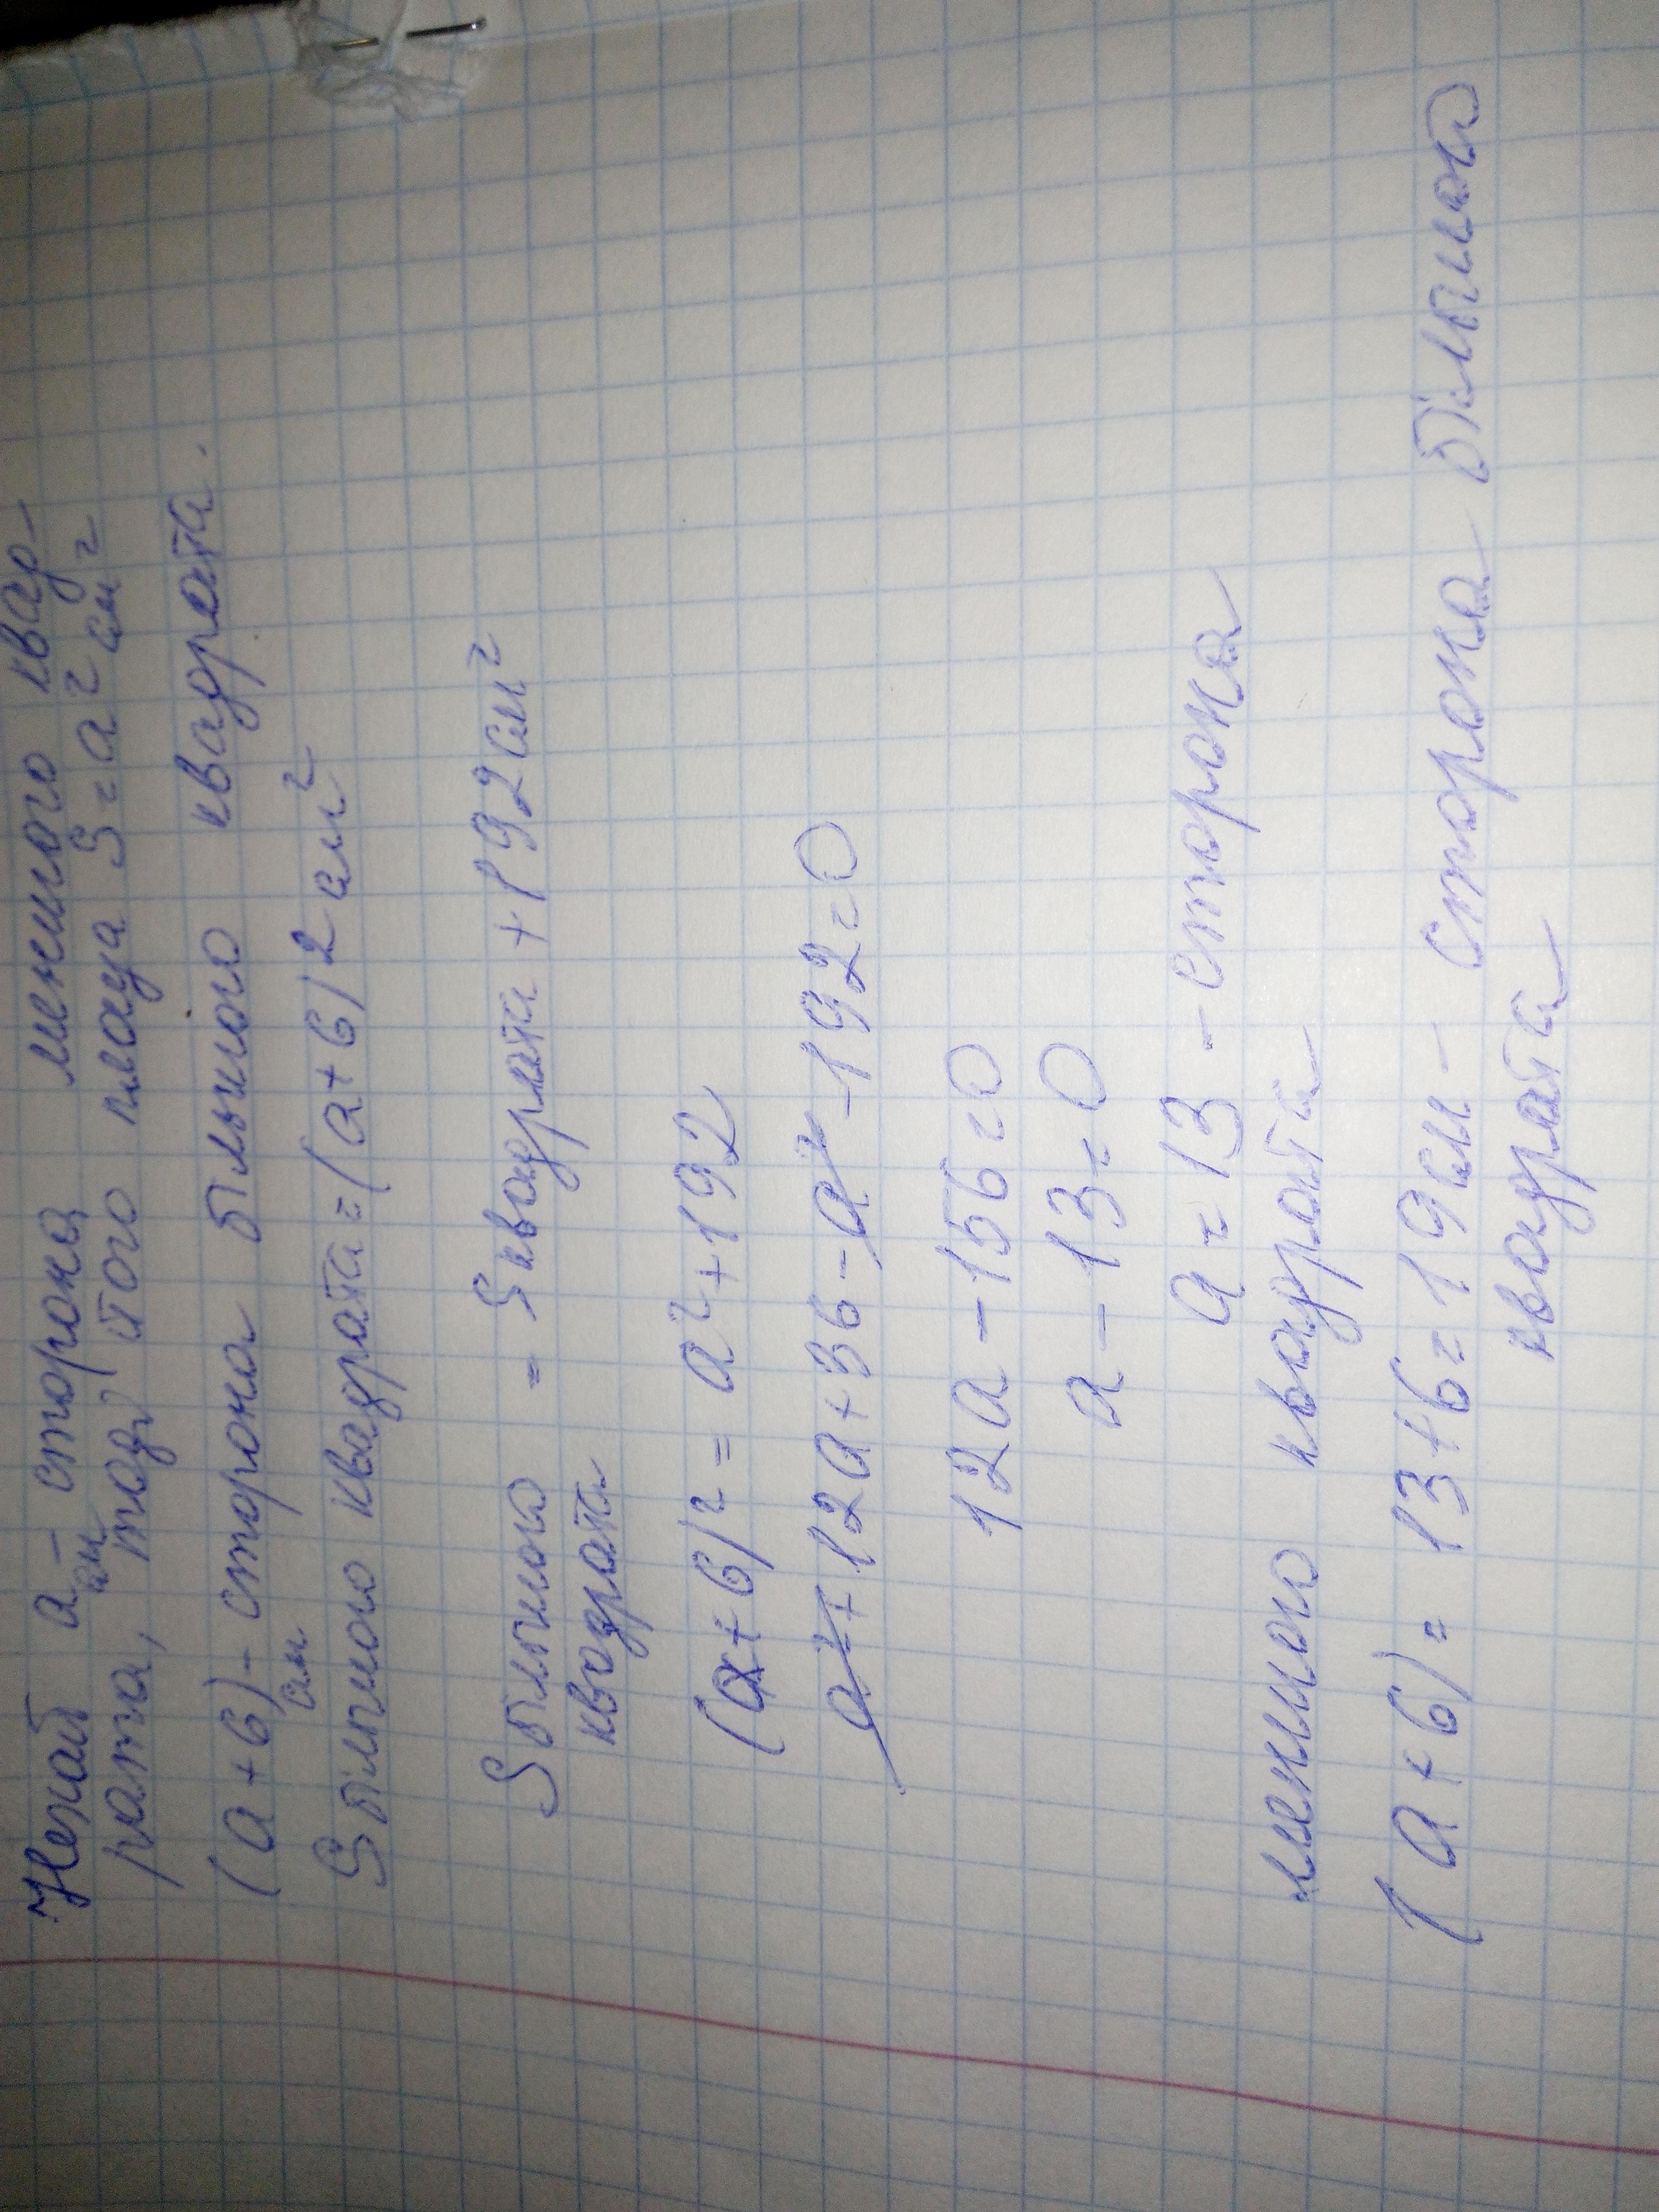 Нехай a см - сторона меншого квад-
рата, тоді його площа S = a² см²
(a + 6) см - сторона більшого квадрата.
S більшого квадрата = (a + 6)² см²
S більшого квадрата = S квадрата + 192 см²
(a + 6)² = a² + 192
a² + 12a + 36 - a² - 192 = 0
12a - 156 = 0
a - 13 = 0
a = 13 - сторона
меншого квадрата
(a + 6) = 13 + 6 = 19 см - сторона більшого
квадрата